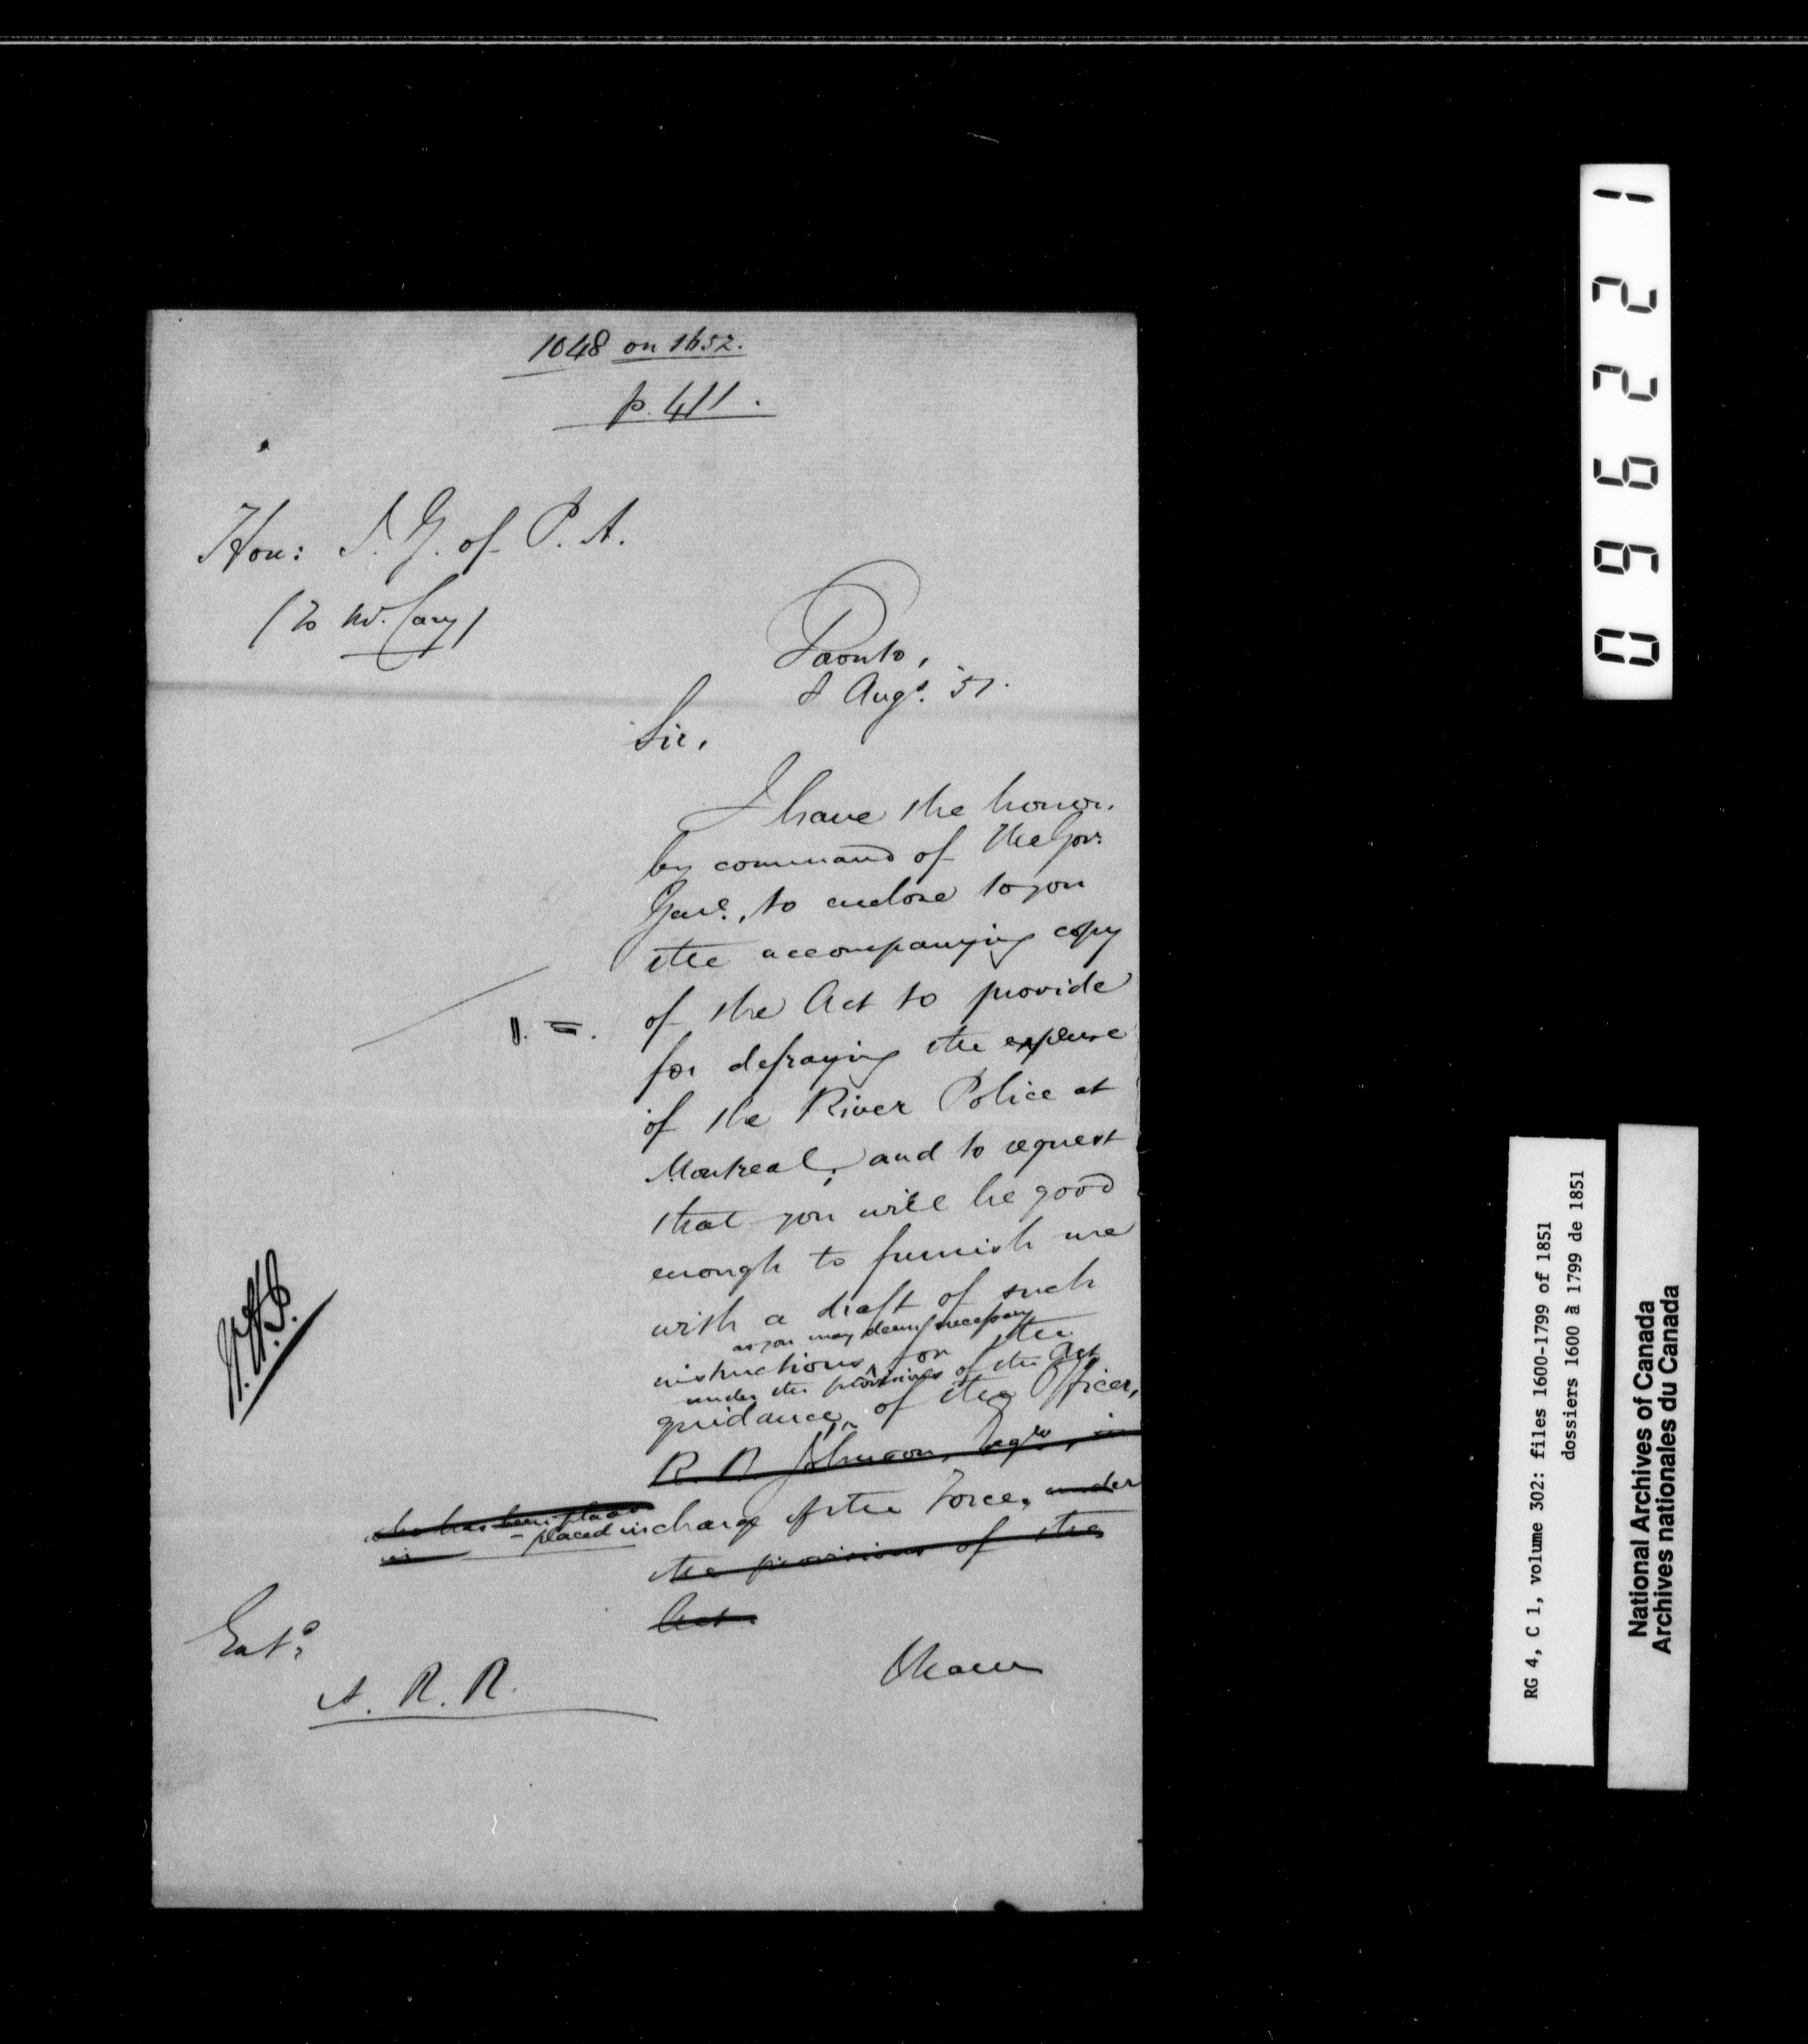 1648 on 1652.
p. 411.
Hon: I. G. of P. A.
(To Mr. Cary)
Toronto,
8 Augt. 51.
Sir,
I have the honor,
by command of The Gov.
Genl., to enclose to you
the accompanying copy
of the Act to provide
for defraying the expense
of the River Police at
Montreal, and to request
that you will be good
enough to furnish me
with a draft of such
as you may deem necessary
instructions for the
under the provisions of the Act
guidance of the Officer,
R. R. Johnson, Esqre, in
who has been placed
in - placed in charge of the Force, under
the provisions of the
Act.
I have
Entd.
A. R. R.
096221
RG 4, C 1, volume 302: files 1600-1799 of 1851
dossiers 1600 à 1799 de 1851
National Archives of Canada
Archives nationales du Canada